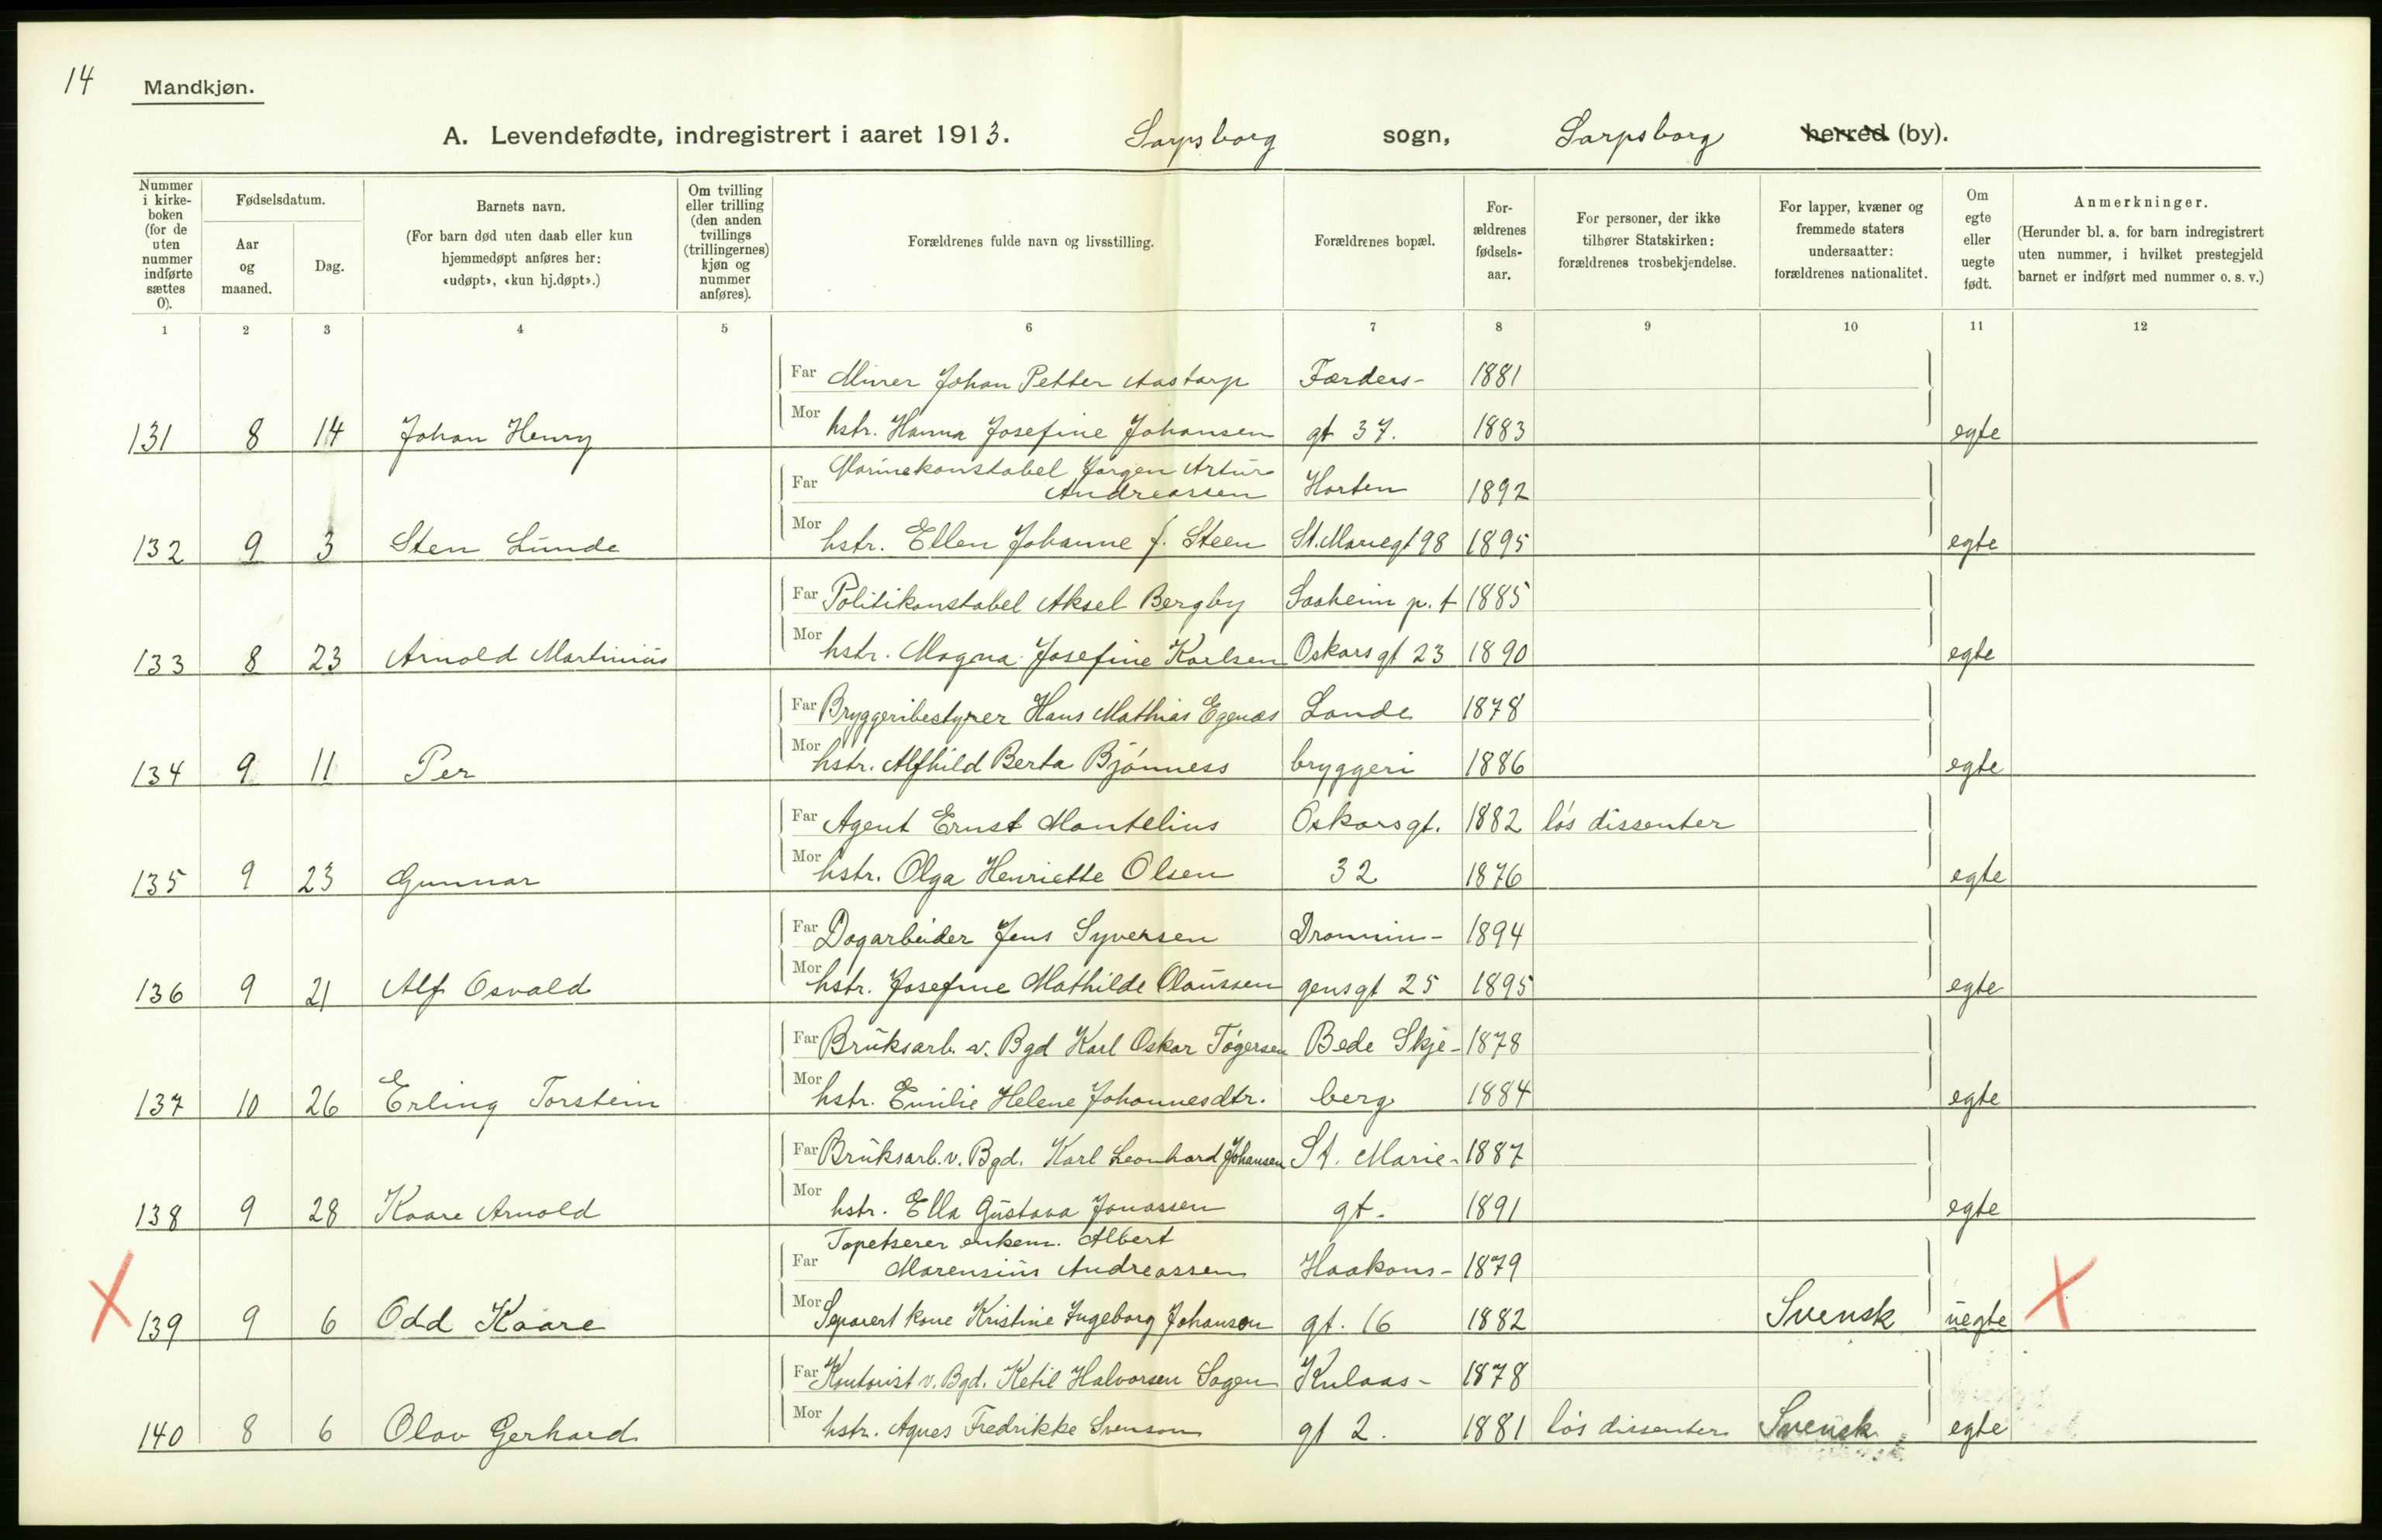 14
Mandkjøn.
A. Levendefødte, indregistrert i aaret 1913. Sarpsborg sogn, Sarpsborg herred (by).
Nummer i kirkeboken (for de uten nummer indførte sættes 0).
Fødselsdatum.
Aar og maaned.
Dag.
Barnets navn.
(For barn død uten daab eller kun hjemmedøpt anføres her: «udøpt», «kun hj.døpt».)
Om tvilling eller trilling (den anden tvillings (trillingernes) kjøn og nummer anføres).
Forældrenes fulde navn og livsstilling.
Forældrenes bopæl.
Forældrenes fødselsaar.
For personer, der ikke tilhører Statskirken: forældrenes trosbekjendelse.
For lapper, kvæner og fremmede staters undersaatter: forældrenes nationalitet.
Om egte eller uegte født.
Anmerkninger.
(Herunder bl. a. for barn indregistrert uten nummer, i hvilket prestegjeld barnet er indført med nummer o. s. v.)
1 2 3 4 5 6 7 8 9 10 11 12
Far Murer Johan Petter Aastorp Færders- 1881
131 8 14 Johan Henry Mor hstr. Hanna Josefine Johansen gt 37. 1883 egte
Marinekonstabel Jørgen Artur
Far Andreassen Horten 1892
132 9 3 Sten Lunde Mor hstr. Ellen Johanne f. Steen St. Mariegt 98 1895 egte
Far Politikonstabel Aksel Bergby Saaheim p.t 1885
133 8 23 Arnold Martinius Mor hstr. Magna Josefine Karlsen Oskarsgt 23 1890 egte
Far Bryggeribestyrer Hans Mathias Egenæs Lande 1878
134 9 11 Per Mor hstr. Alfhild Berta Bjønness bryggeri 1886 egte
Far Agent Ernst Montelius Oskarsgt. 1882 løs dissenter
135 9 23 Gunnar Mor hstr. Olga Henriette Olsen 32 1876 egte
Far Dagarbeider Jens Syversen Dronnin- 1894
136 9 21 Alf Osvald Mor hstr. Josefine Mathilde Olaussen gensgt 25 1895 egte
Far Bruksarb. v. Bgd Karl Oskar Tøgersen Bede Skje- 1878
137 10 26 Erling Torstein Mor hstr. Emilie Helene Johannesdtr. berg 1884 egte
Far Bruksarb. v. Bgd. Karl Leonhard Johansen St. Marie- 1887
138 9 28 Kaare Arnold Mor hstr. Ella Gustava Jonassen gt. 1891 egte
Tapetserer enkem. Albert
Far Marensius Andreassen Haakons- 1879
139 9 6 Odd Kaare Mor Separert kone Kristine Ingeborg Johanson gt. 16 1882 Svensk uegte
Far Kontorist v. Bgd. Ketil Halvorsen Sagen Kulaas- 1878
140 8 6 Olav Gerhard Mor hstr. Agnes Fredrikke Svenson gt 2. 1881 løs dissenter Svensk egte